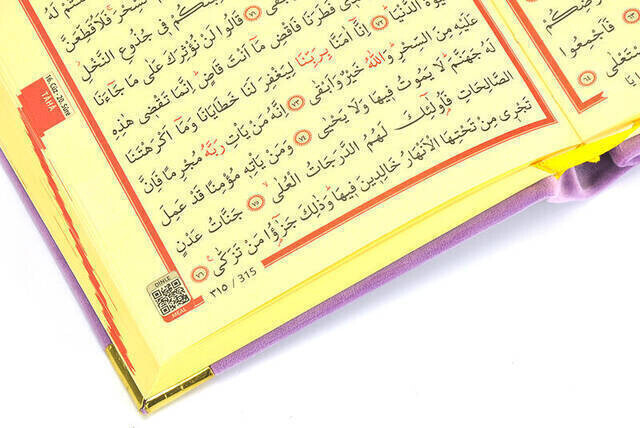 فَلَاُقَطِّعَنَّ
فِي جُذُوعِ النَّخْلِ
﴿٧١﴾ قَالُوا لَنْ نُؤْثِرَكَ عَلٰى مَا جَٓاءَنَا
فَطَرَنَا فَاقْضِ مَٓا اَنْتَ قَاضٍ اِنَّمَا تَقْضِي هٰذِهِ
الدُّنْيَا ﴿٧٢﴾ اِنَّٓا اٰمَنَّا بِرَبِّنَا لِيَغْفِرَ لَنَا خَطَايَانَا وَمَٓا اَكْرَهْتَنَا
عَلَيْهِ مِنَ السِّحْرِ وَاللّٰهُ خَيْرٌ وَاَبْقٰى ﴿٧٣﴾ اِنَّهُ مَنْ يَأْتِ رَبَّهُ مُجْرِمًا فَاِنَّ
لَهُ جَهَنَّمَ لَا يَمُوتُ فِيهَا وَلَا يَحْيٰى ﴿٧٤﴾ وَمَنْ يَأْتِهِ مُؤْمِنًا قَدْ عَمِلَ
الصَّالِحَاتِ فَاُولٰٓئِكَ لَهُمُ الدَّرَجَاتُ الْعُلٰى ﴿٧٥﴾ جَنَّاتُ عَدْنٍ
تَجْرِي مِنْ تَحْتِهَا الْاَنْهَارُ خَالِدِينَ فِيهَا وَذٰلِكَ جَزٰٓؤُا مَنْ تَزَكّٰى ﴿٧٦﴾
٣١٥ / 315
16. Cüz - 20. Sûre
TAHA
DİNLE
MEAL
فَاَجْمِعُوا
﴿٦٤﴾